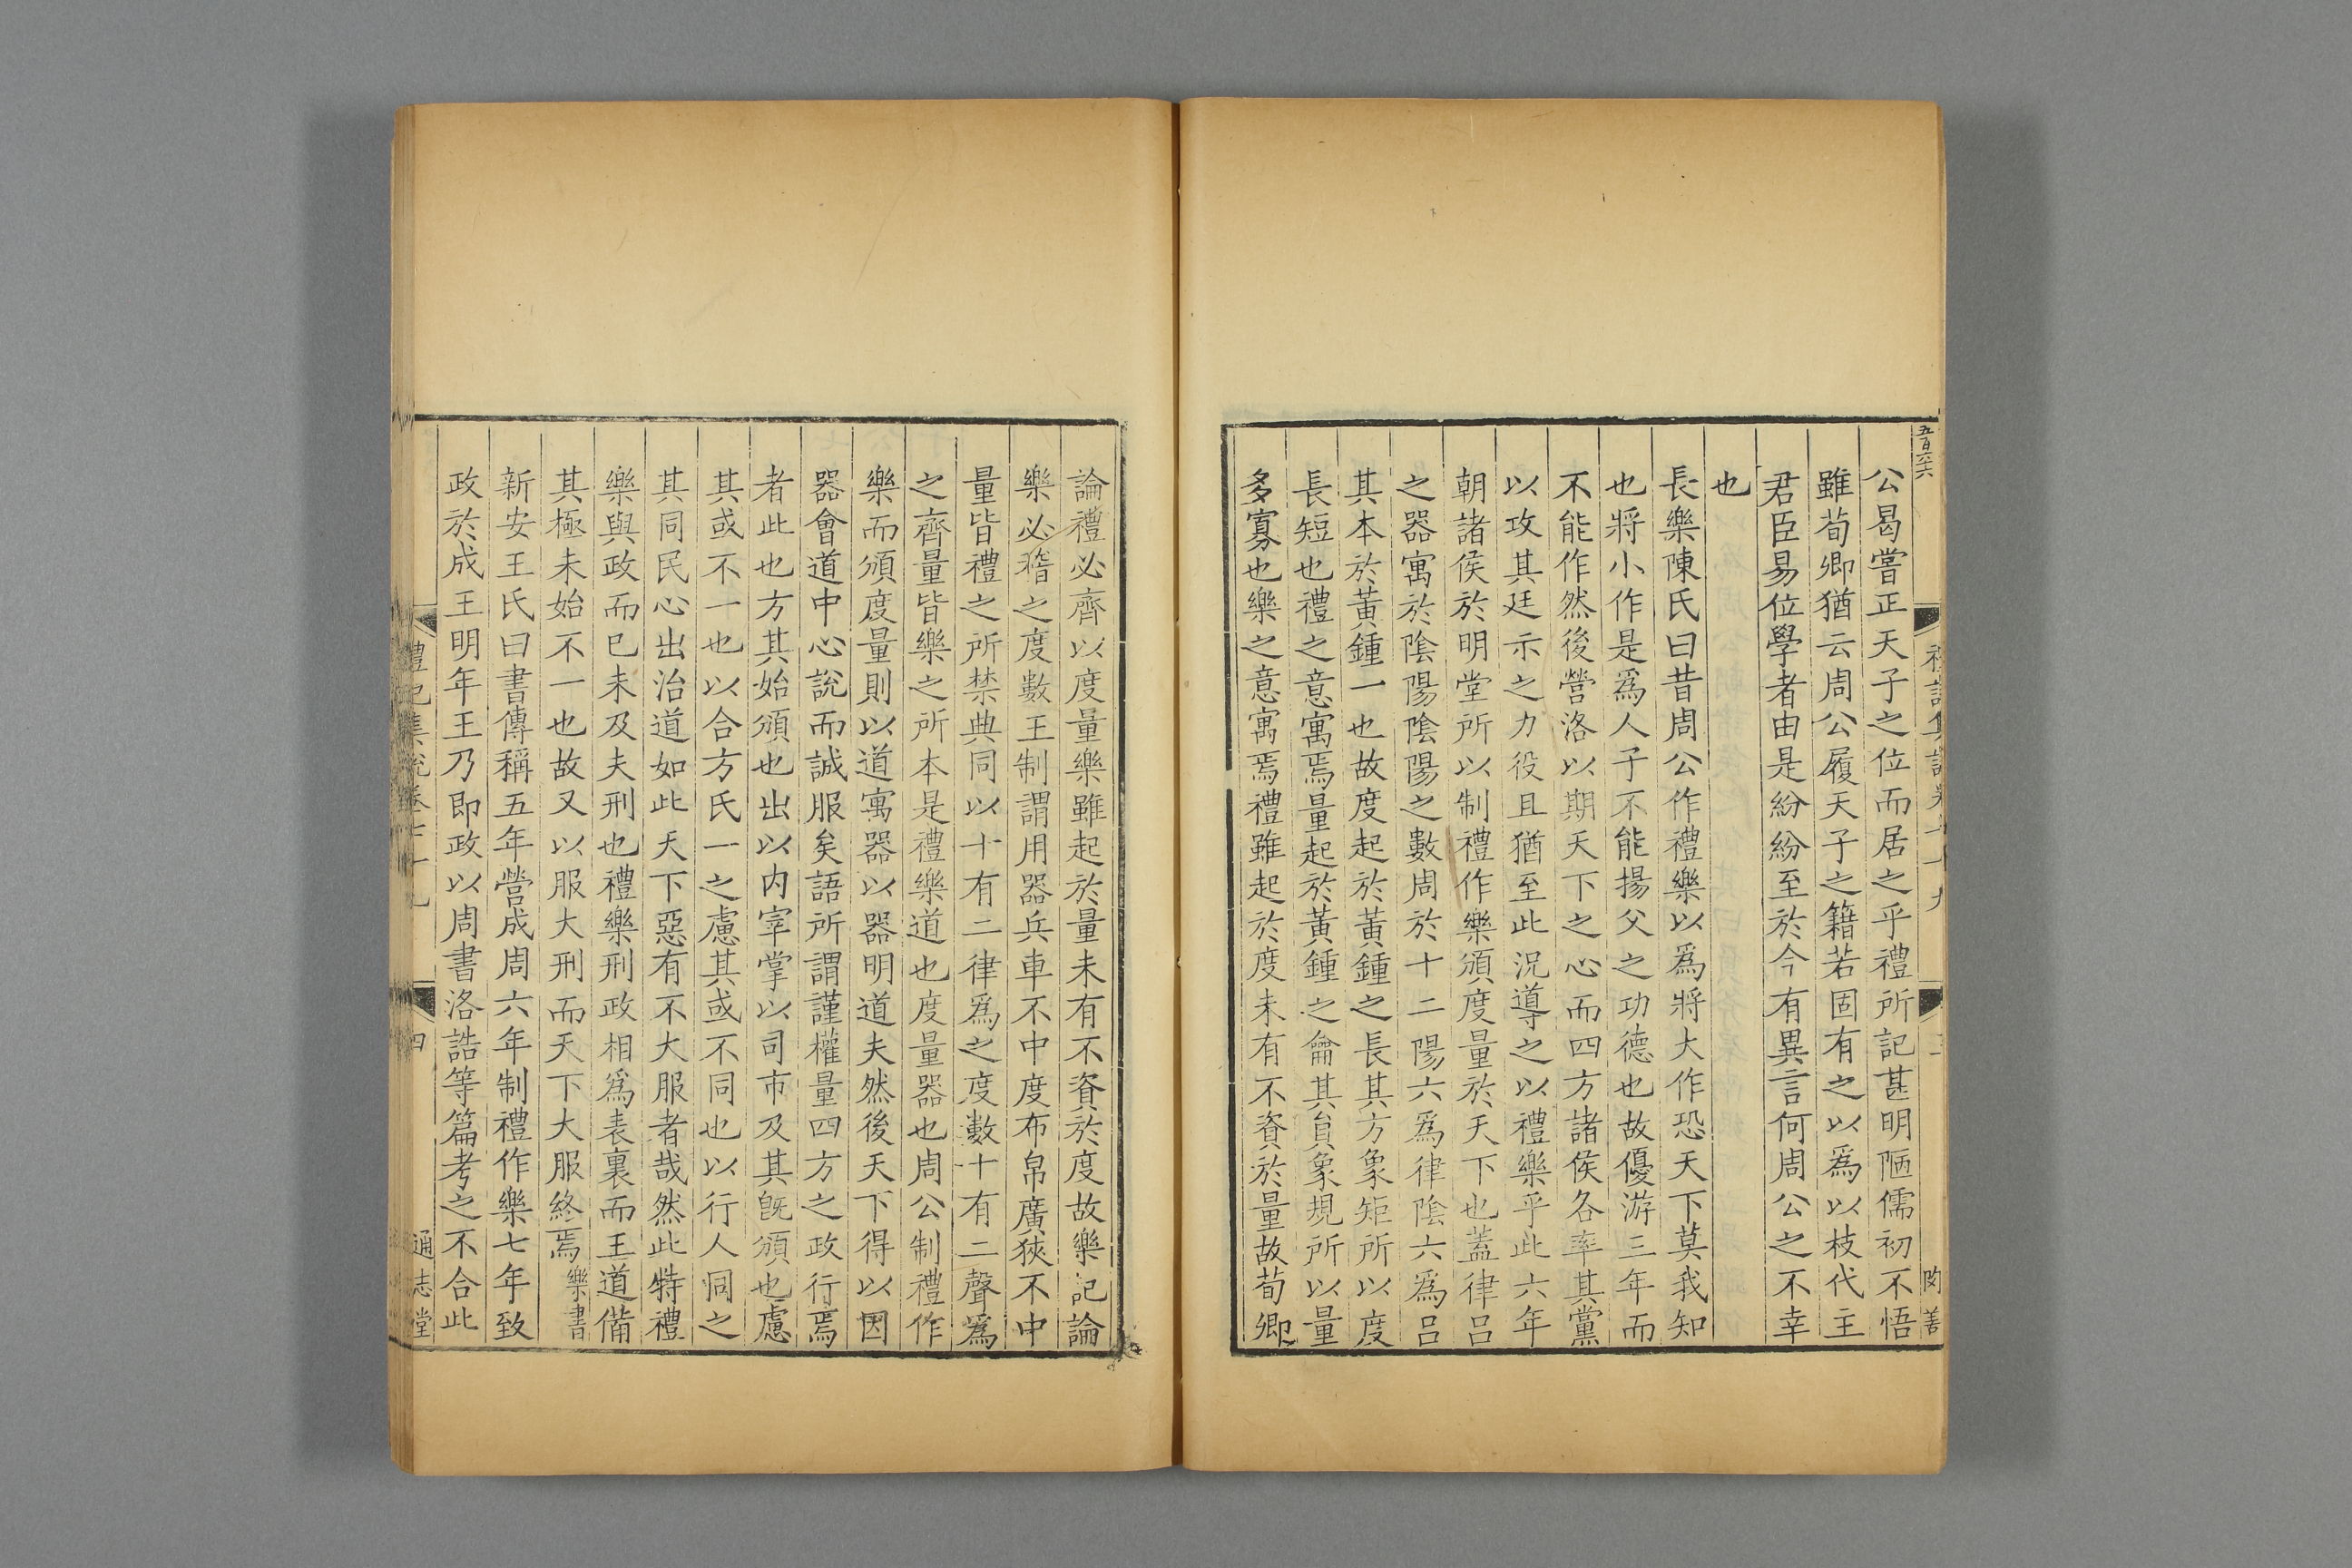 五百六十六
禮記集說卷七十九
陶善
公曷嘗正天子之位而居之乎禮所記甚明陋儒初不悟
雖荀卿猶云周公履天子之籍若固有之以為以枝代主
君臣易位學者由是紛紛至於今有異言何周公之不幸
也
長樂陳氏曰昔周公作禮樂以爲將大作恐天下莫我知
也將小作是爲人子不能揚父之功德也故優游三年而
不能作然後營洛以期天下之心而四方諸侯各率其黨
以攻其廷示之力役且猶至此況導之以禮樂乎此六年
朝諸侯於明堂所以制禮作樂頒度量於天下也蓋律呂
之器寓於陰陽陰陽之數周於十二陽六爲律陰六爲呂
其本於黃鍾一也故度起於黃鍾之長其方象矩所以度
長短也禮之意寓焉量起於黃鍾之龠其員象規所以量
多寡也樂之意寓焉禮雖起於度未有不資於量故荀卿
論禮必齊以度量樂雖起於量未有不資於度故樂記論
樂必稽之度數王制謂用器兵車不中度布帛廣狹不中
量皆禮之所禁典同以十有二律爲之度數十有二聲爲
之齊量皆樂之所本是禮樂道也度量器也周公制禮作
樂而頒度量則以道寓器以器明道夫然後天下得以因
器會道中心說而誠服矣語所謂謹權量四方之政行焉
者此也方其始頒也出以内宰掌以司市及其旣頒也慮
其或不一也以合方氏一之慮其或不同也以行人同之
其同民心出治道如此天下惡有不大服者哉然此特禮
樂與政而已未及夫刑也禮樂刑政相爲表裏而王道備
其極未始不一也故又以服大刑而天下大服終焉樂書
新安王氏曰書傳稱五年營成周六年制禮作樂七年致
政於成王明年王乃即政以周書洛誥等篇考之不合此
禮記集說卷七十九
四
通志堂